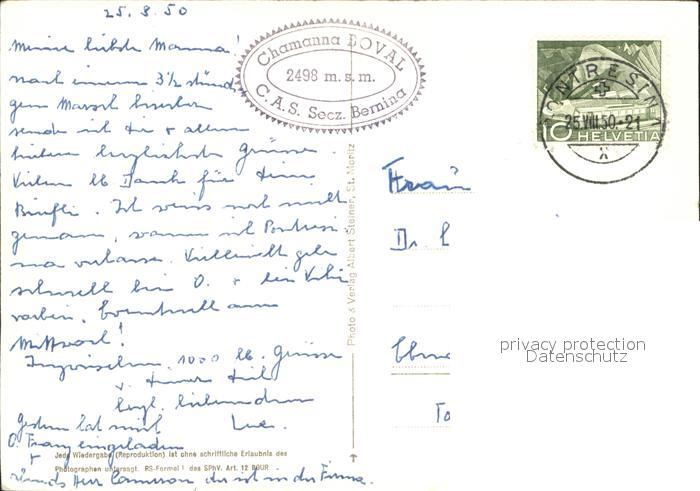 25. 8. 50
Meine liebste Mamma!
nach einem 3½ stündi-
gem Marsch hierher
sende ich dir & allen
lieben herzlichste Grüsse.
Vielen lb Dank für dein
Briefli. Ich weiss noch nicht
genau, wann ich Pontresi-
na verlasse. Vielleicht gehe
schnell bei O. & bei Vehi
vorbei. Eventuell am
Mittwoch!
Inzwischen 1000 lb. Grüsse
v. deiner dich
herzl. liebenden
Gestern hat mich
O. Franz eingeladen
&
Herr Cameron, der ist in der Firma.
Chamanna BOVAL
2498 m. s. m.
C. A. S. Secz. Bernina
PONTRESINA
25.VIII.50.-21
X
10 HELVETIA
Frau
Dr.
Photo & Verlag Albert Steiner, St. Moritz
privacy protection
Datenschutz
Jede Wiedergabe (Reproduktion) ist ohne schriftliche Erlaubnis des
Photographen untersagt. RS-Formel I des SPhV. Art. 12 BGUR